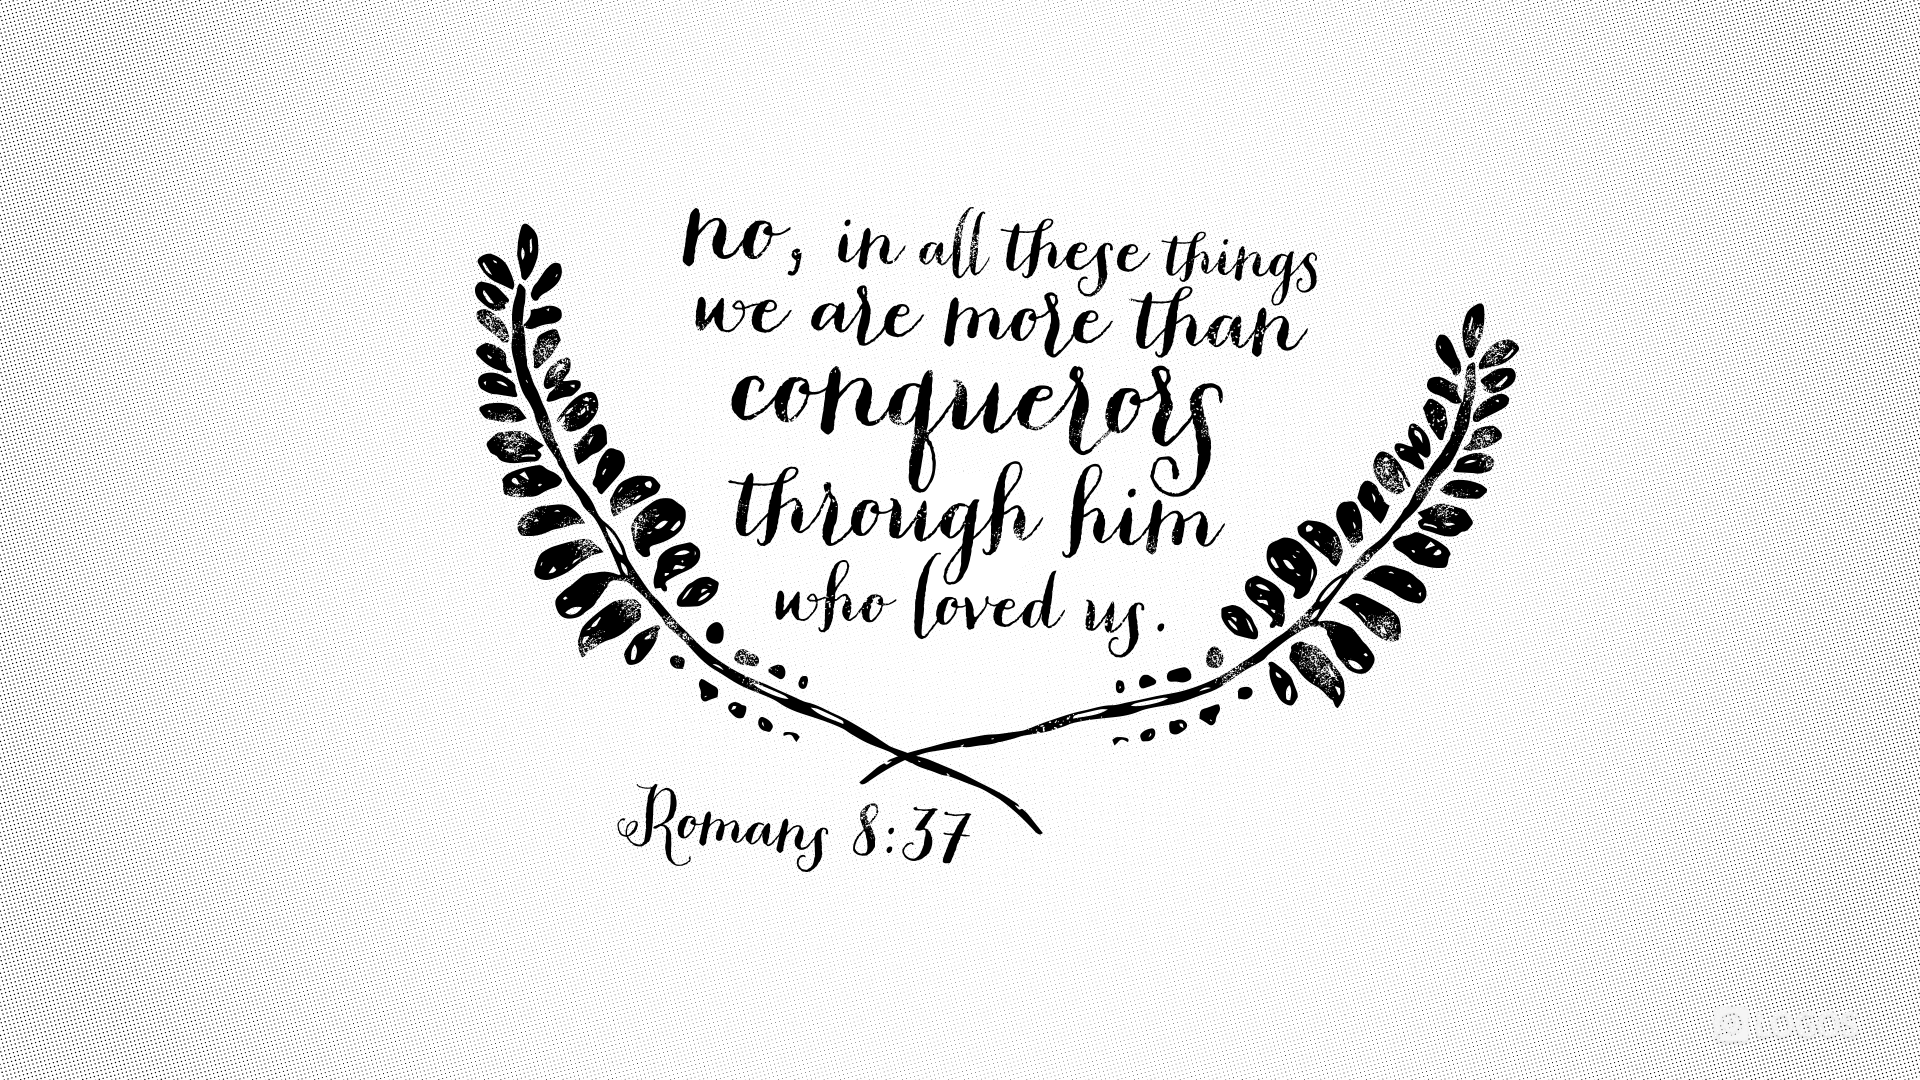 no, in all these things
we are more than
conquerors
through him
who loved us.
Romans 8:37
LOGOS